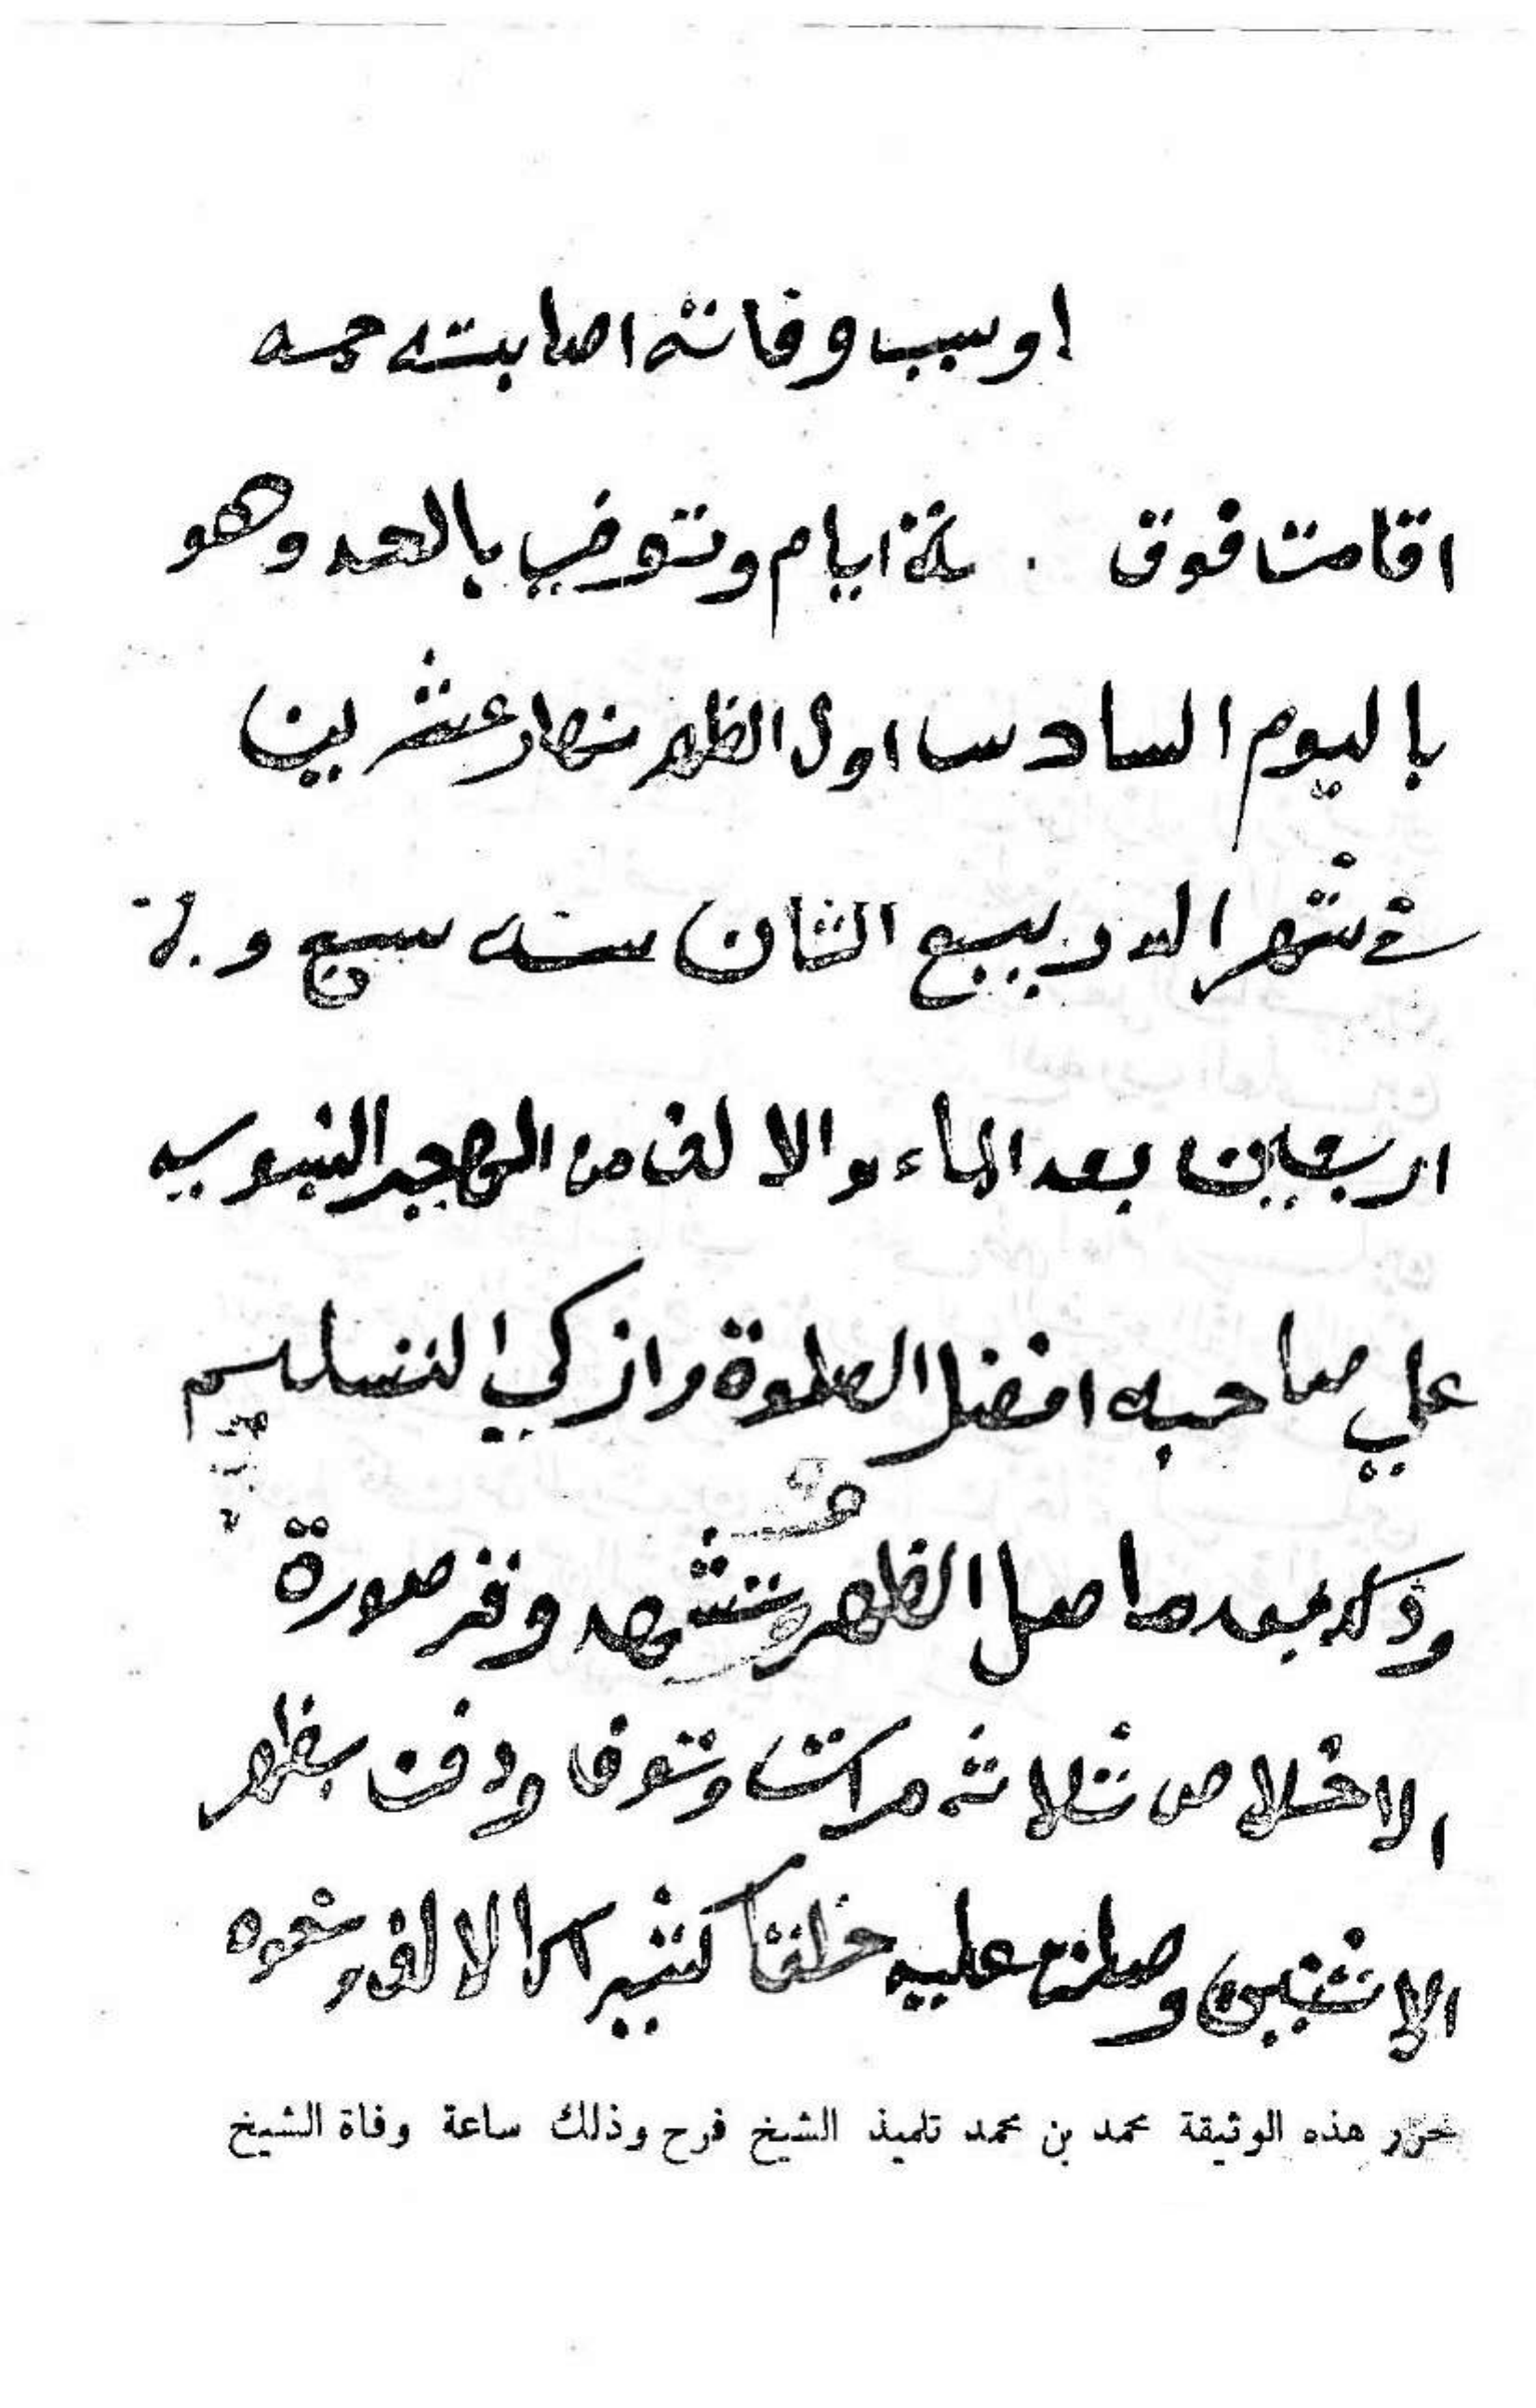 اوسبب وفاته اصابته حمه
اقامت فوق ايام وتوفي بالحد وهو
باليوم السادس اول الظهر نهار عشرين
في شهر الله ربيع الثان سنه سبع و
اربعين بعد الماء والالف من الهجر النبويه
علي صاحبه افضل الصلوة وازكي التسليم
وذلك بعدما صل الظهر وتشهد وقر صورة
الاخلاص ثلاثه مرات وتوفا ودفن بظهر
الاثنين وصلت عليه خلقا كثيرا الالف ونحوه
حرّر هذه الوثيقة محمد بن محمد تلميذ الشيخ فرح وذلك ساعة وفاة الشيخ